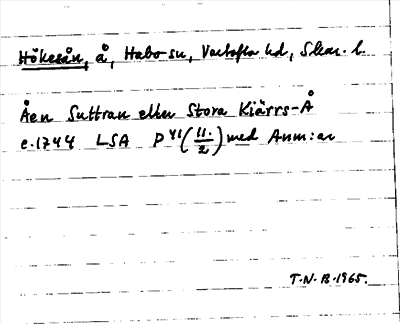 Hökesån, å, Habo sn, Vartofta hd, Skar. l.
Åen Suttran eller Stora Kiärrs-Å
c.1744 LSA P 41 (11./2) med Anm:ar
T.N.B. 1965.